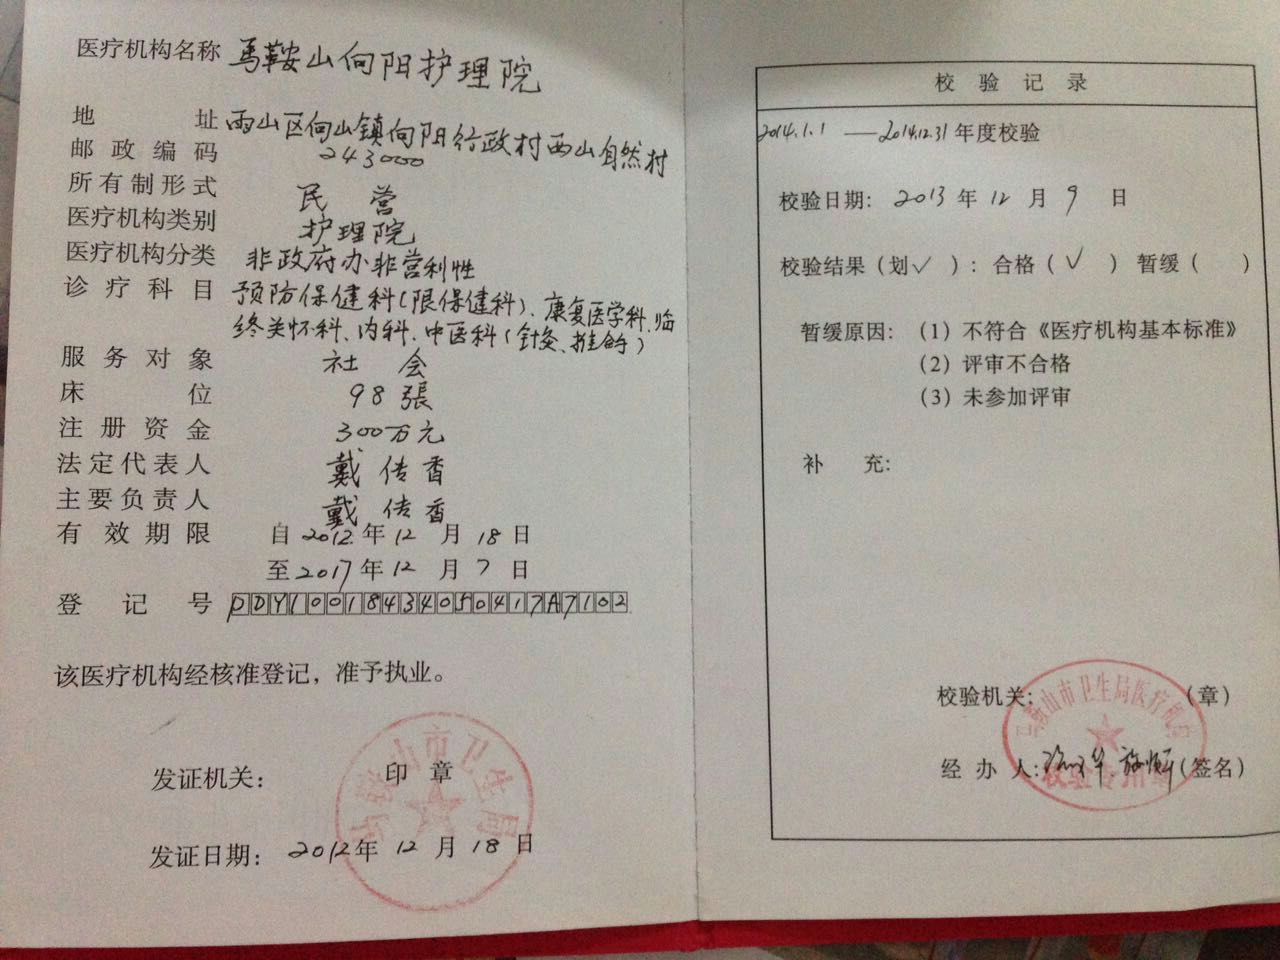 医疗机构名称 马鞍山向阳护理院
地 址 雨山区向山镇向阳行政村西山自然村
邮政编码 243000
所有制形式 民 营
医疗机构类别 护理院
医疗机构分类 非政府办非营利性
诊疗科目 预防保健科(限保健科)、康复医学科、临
终关怀科、内科、中医科(针灸、推拿)
服务对象 社 会
床 位 98張
注册资金 300万元
法定代表人 戴传香
主要负责人 戴传香
有效期限 自2012年12月18日
至2017年12月7日
登 记 号 PDY10018434050417A7102
该医疗机构经核准登记，准予执业。
发证机关： 印 章
马鞍山市卫生局
发证日期： 2012年12月18日
校 验 记 录
2014.1.1 — 2014.12.31年度校验
校验日期: 2013年12月9日
校验结果(划✓): 合格(✓) 暂缓( )
暂缓原因: (1) 不符合《医疗机构基本标准》
(2) 评审不合格
(3) 未参加评审
补 充:
校验机关: (章)
马鞍山市卫生局医疗机构
校验专用章
经 办 人: (签名)